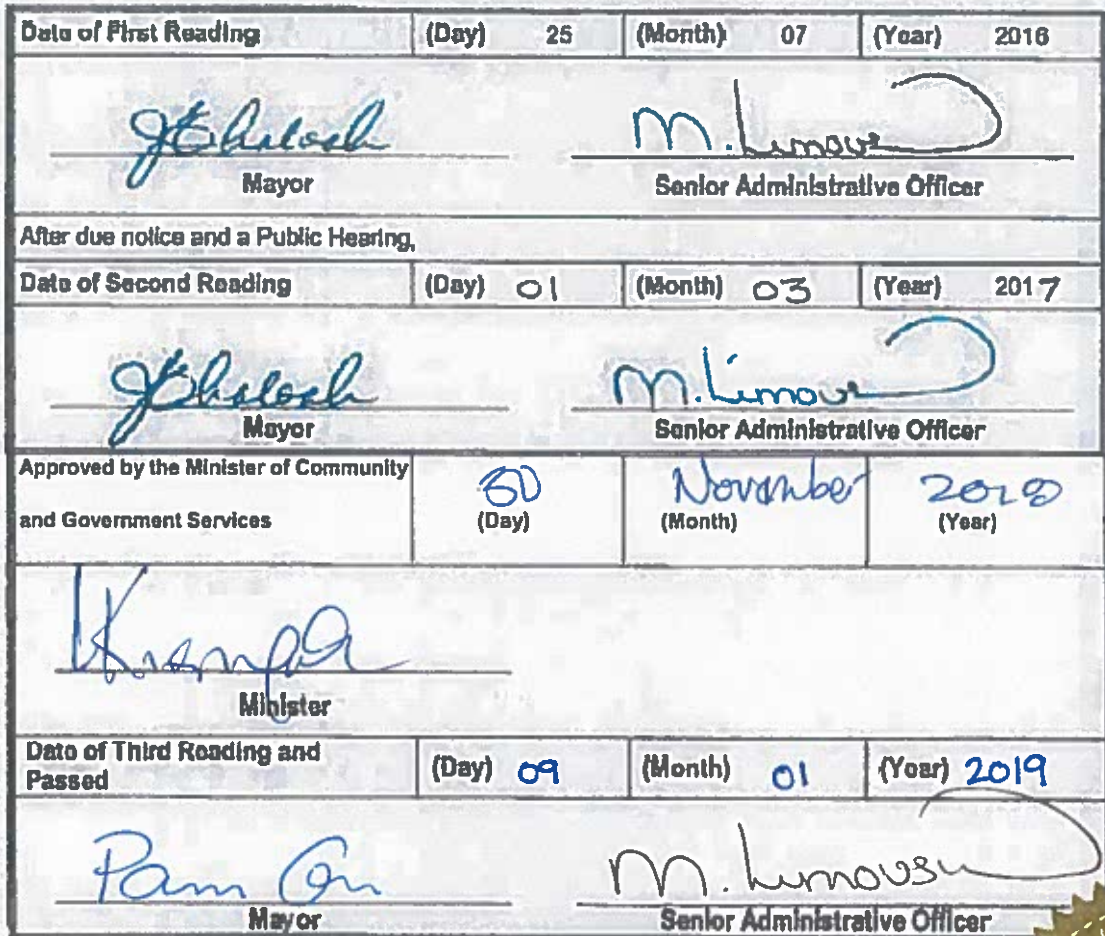 Date of First Reading (Day) 25 (Month) 07 (Year) 2016
M. Limous
Mayor Senior Administrative Officer
After due notice and a Public Hearing,
Date of Second Reading (Day) 01 (Month) 03 (Year) 2017
M. Limous
Mayor Senior Administrative Officer
Approved by the Minister of Community
30 November
and Government Services (Day) (Month) (Year)
Minister
Date of Third Reading and
Passed (Day) 09 (Month) 01 (Year) 2019
M. Limousin
Mayor Senior Administrative Officer